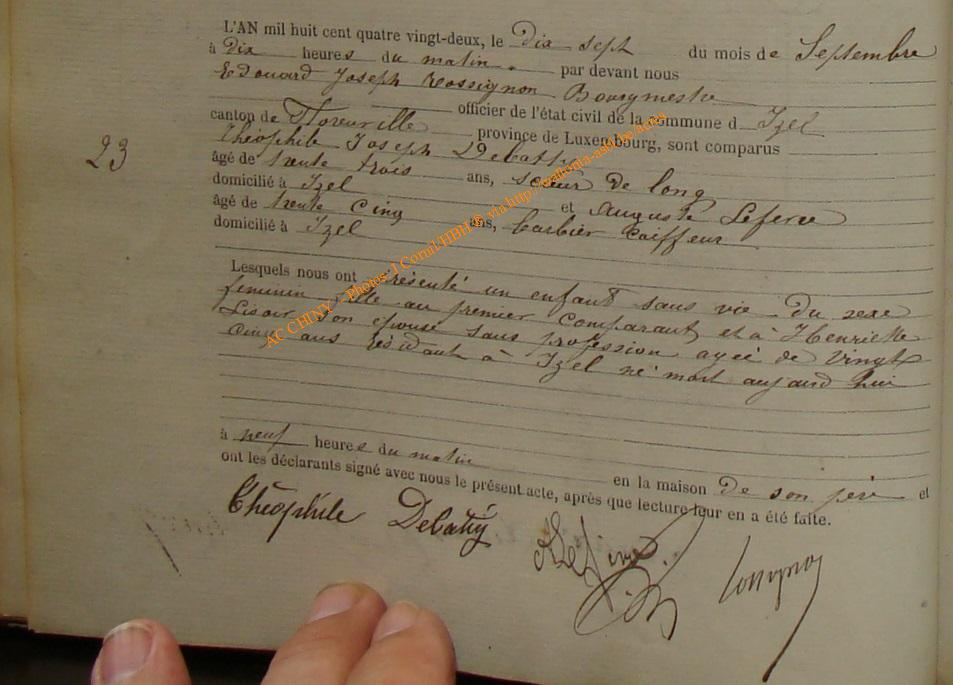 L'AN mil huit cent quatre vingt-deux, le Dix sept du mois de Septembre
à Dix heures du matin. par devant nous
Edouard Joseph Rossignon Bourgmestre
officier de l'état civil de la commune d Izel
canton de Florenville province de Luxembourg, sont comparus
Théophile Joseph Debathy
23
âgé de trente trois ans, scieur de long
domicilié à Izel et Auguste Lefevre
âgé de trente cinq ans, barbier coiffeur
domicilié à Izel
Lesquels nous ont présenté un enfant sans vie du sexe
feminin née au premier comparant et à Henriette
son épouse sans profession agée de vingt
cinq ans résidant à Izel né mort aujourd'hui
à neuf heures du matin en la maison de son père et
ont les déclarants signé avec nous le présent acte, après que lecture leur en a été faite.
Théophile Debathy
Rossignon
AC CHINY - Photos: J Conal-HBH © via http://wallonia-asbl.be/actes